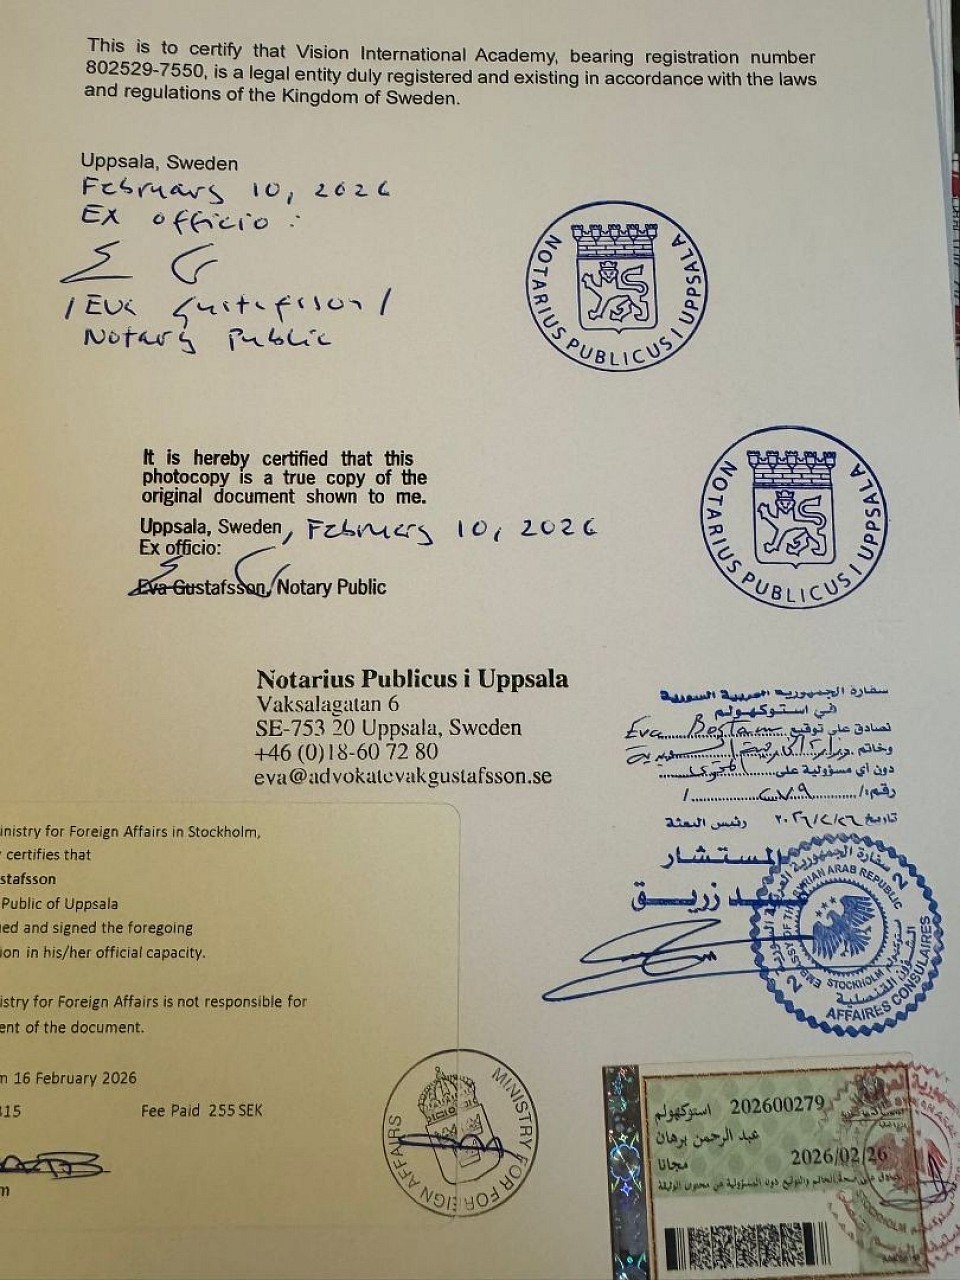 This is to certify that Vision International Academy, bearing registration number
802529-7550, is a legal entity duly registered and existing in accordance with the laws
and regulations of the Kingdom of Sweden.
Uppsala, Sweden
February 10, 2026
Ex officio:
/Eva Gustafsson/
Notary Public
NOTARIUS PUBLICUS I UPPSALA
It is hereby certified that this
photocopy is a true copy of the
original document shown to me.
Uppsala, Sweden, February 10, 2026
Ex officio:
Eva Gustafsson, Notary Public
NOTARIUS PUBLICUS I UPPSALA
Notarius Publicus i Uppsala
Vaksalagatan 6
SE-753 20 Uppsala, Sweden
+46 (0)18-60 72 80
eva@advokatevakgustafsson.se
سفارة الجمهورية العربية السورية
في استوكهولم
نصادق على توقيع Eva Bostam
وخاتم وزارة الخارجية السويدية
دون أي مسؤولية على المحتوى
رقم: ٢٧٩ /
تاريخ ٢٠٢٦/٢/٢٦ رئيس البعثة
المستشار
زريق
سفارة الجمهورية العربية السورية
EMBASSY OF THE SYRIAN ARAB REPUBLIC
STOCKHOLM
الشؤون القنصلية
AFFAIRES CONSULAIRES
2
2
inistry for Foreign Affairs in Stockholm,
certifies that
stafsson
Public of Uppsala
ed and signed the foregoing
ion in his/her official capacity.
istry for Foreign Affairs is not responsible for
ent of the document.
m 16 February 2026
315 Fee Paid 255 SEK
m
MINISTRY FOR FOREIGN AFFAIRS
202600279 استوكهولم
عبد الرحمن برهان
2026/02/26
مجانا
STOCKHOLM